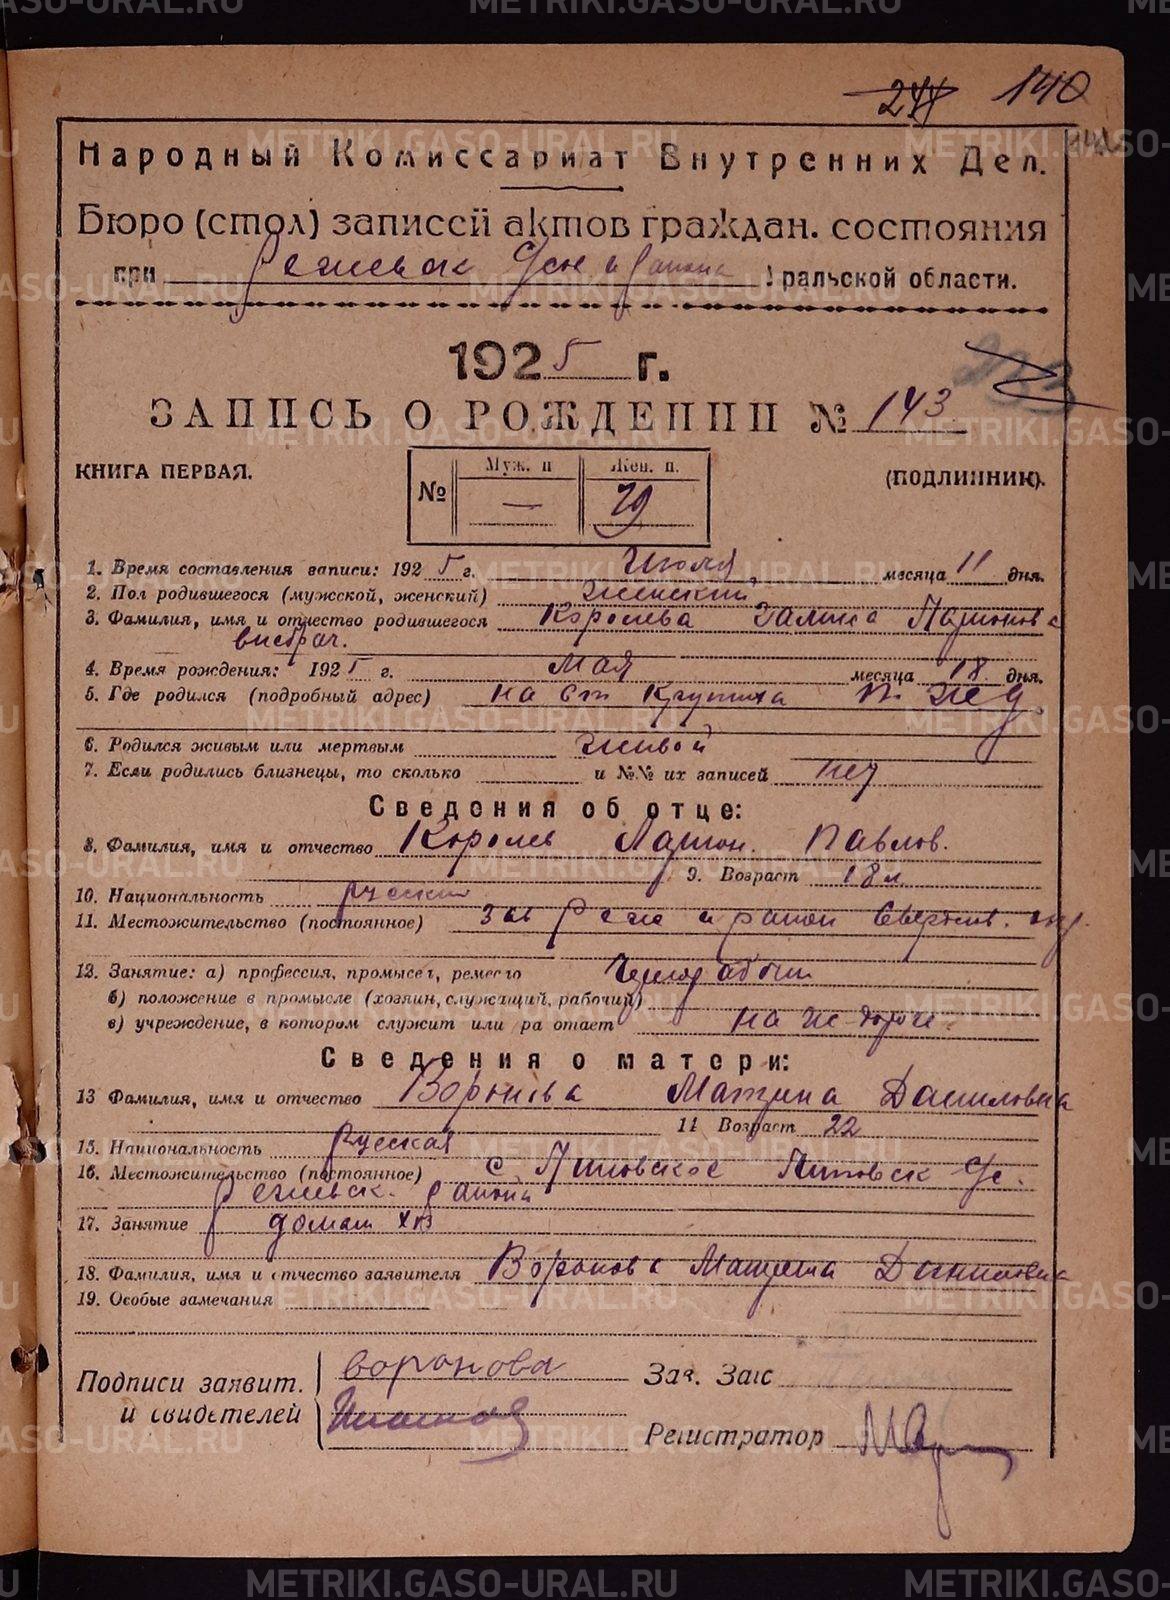 244 140
Народный Комиссариат Внутренних Дел.
Бюро (стол) записей актов граждан. состояния
при Режевск районе Уральской области.
1925 г.
ЗАПИСЬ О РОЖДЕНИИ № 143
КНИГА ПЕРВАЯ. (ПОДЛИННИК).
№ Муж. п — Жен. п. 79
1. Время составления записи: 1925 г. Июля месяца 11 дня.
2. Пол родившегося (мужской, женский) Женский
3. Фамилия, имя и отчество родившегося Королева Галина Ларионовна
внебрач.
4. Время рождения: 1925 г. мая месяца 18 дня.
5. Где родился (подробный адрес) на ст Крутиха П. жед
6. Родился живым или мертвым живой
7. Если родились близнецы, то сколько и №№ их записей нет
Сведения об отце:
8. Фамилия, имя и отчество Королев Ларион. Павлов.
9. Возраст 18 л
10. Национальность русский
11. Местожительство (постоянное) Реж район Свердлов. окр.
12. Занятие: а) профессия, промысел, ремесло Чернорабочий
б) положение в промысле (хозяин, служащий, рабочий)
в) учреждение, в котором служит или работает на же-дороге
Сведения о матери:
13 Фамилия, имя и отчество Воронова Матрена Даниловна
14 Возраст 22
15. Национальность Русская
16. Местожительство (постоянное) с. Липовское Липовск с/с.
Режевск. района
17. Занятие домаш хоз
18. Фамилия, имя и отчество заявителя Воронова Матрена Даниловна
19. Особые замечания
Подписи заявит. воронова Зав. Загс
и свидетелей Регистратор
METRIKI.GASO-URAL.RU